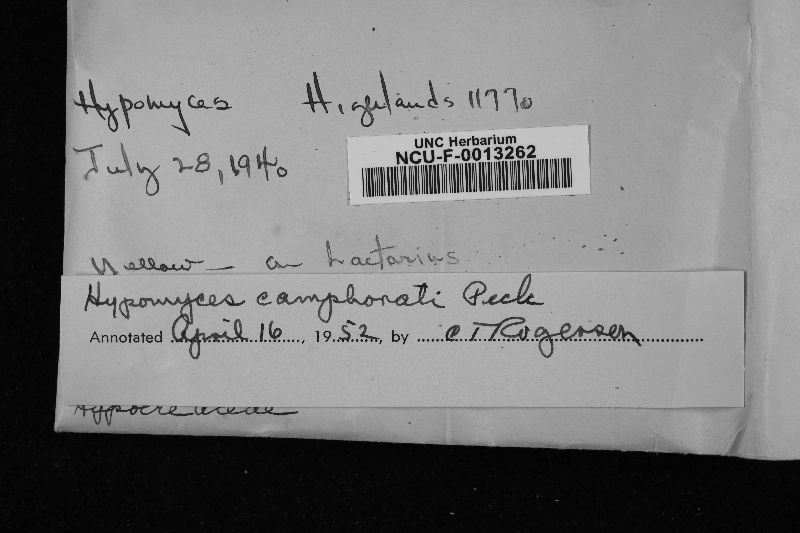 Hypomyces Highlands 11770
UNC Herbarium
NCU-F-0013262
July 28, 1940
Yellow — on Lactarius
Hypomyces camphorati Peck
Annotated April 16, 1952, by C T Rogerson
Hypocreaceae